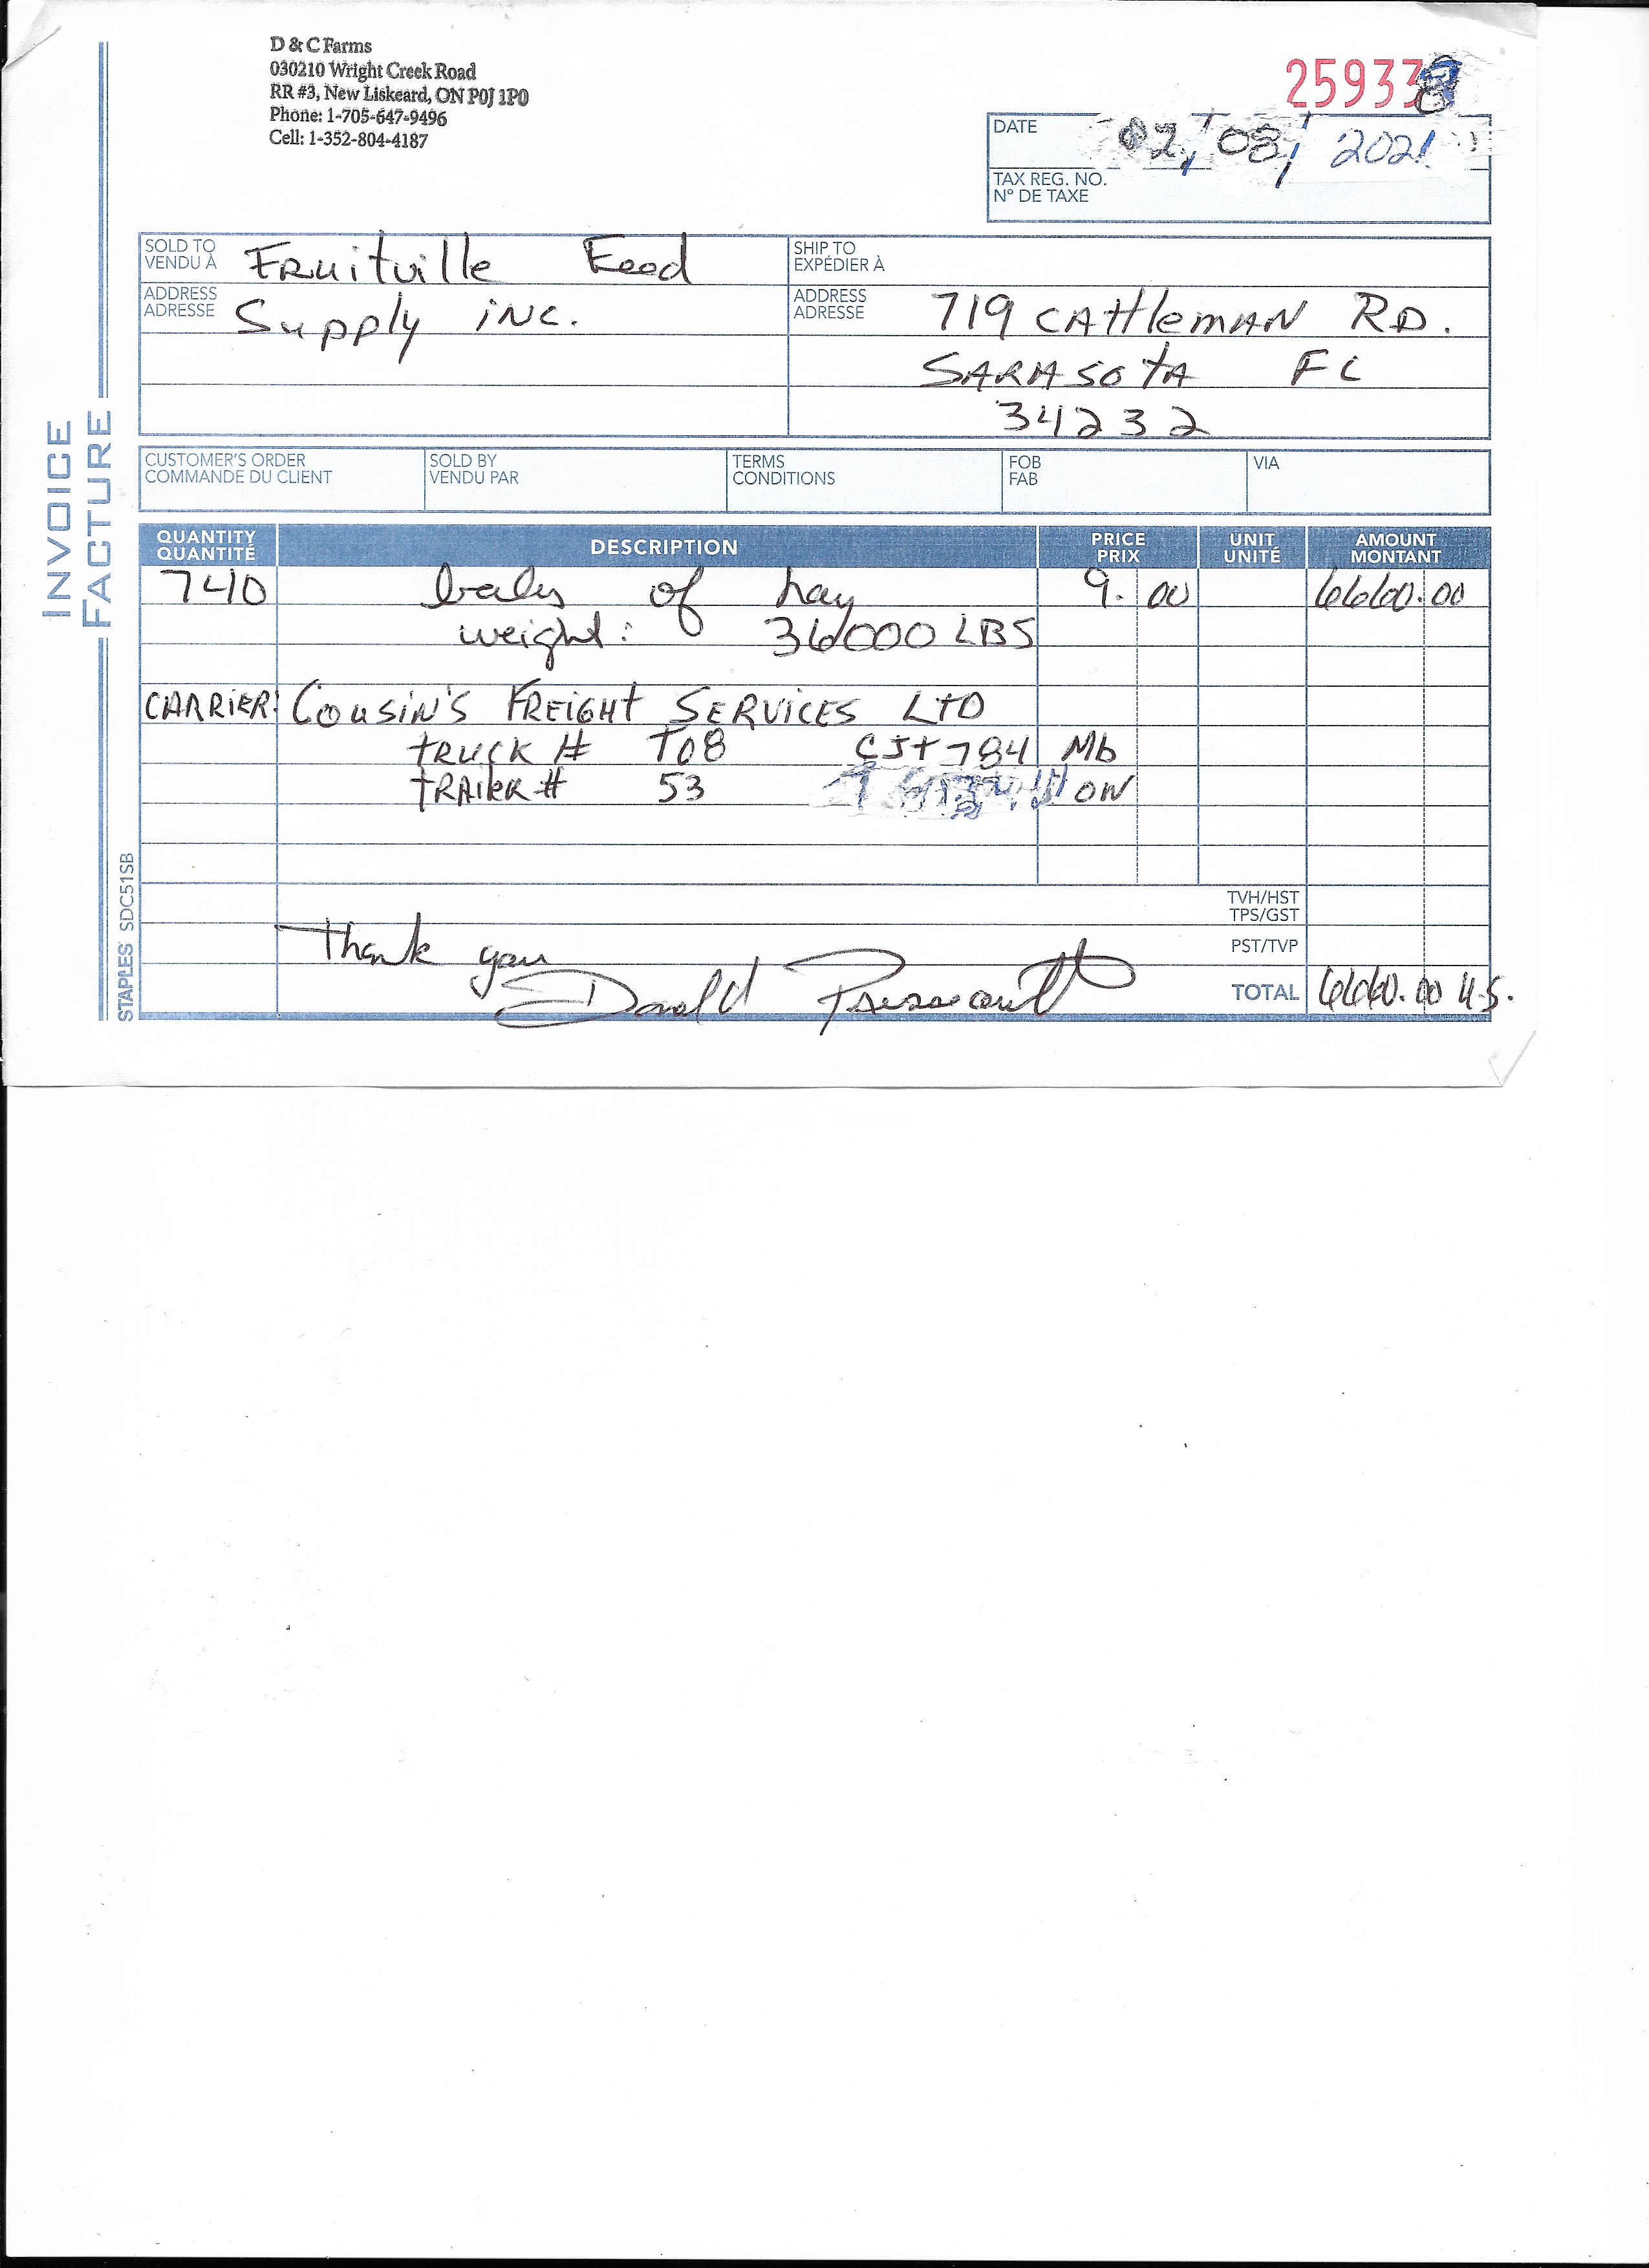 D & C Farms
030210 Wright Creek Road
RR #3, New Liskeard, ON P0J 1P0
Phone: 1-705-647-9496
Cell: 1-352-804-4187
259338
DATE 02, 08, 2021
TAX REG. NO.
Nº DE TAXE
SOLD TO
VENDU À
Fruitville Feed
ADDRESS
ADRESSE
Supply inc.
SHIP TO
EXPÉDIER À
ADDRESS
ADRESSE
719 CAttlemAN RD.
SARASOtA FL
34232
INVOICE
FACTURE
CUSTOMER'S ORDER
COMMANDE DU CLIENT
SOLD BY
VENDU PAR
TERMS
CONDITIONS
FOB
FAB
VIA
QUANTITY
QUANTITÉ
DESCRIPTION
PRICE
PRIX
UNIT
UNITÉ
AMOUNT
MONTANT
740 bales of hay 9.00 6660.00
weight: 36000 LBS
CARRIER: COUSIN'S FREIGHT SERVICES LTD
TRUCK # T08 CJt784 Mb
TRAILER # 53 ON
TVH/HST
TPS/GST
PST/TVP
Thank you
Donald
TOTAL 6660.00 U.S.
STAPLES SDC51SB